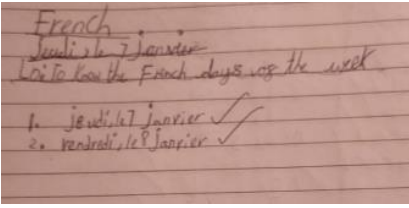 French
Jeudi, le 7 janvier
L.O: To know the French days of the week
1. jeudi, le 7 janvier
2. vendredi, le 8 janvier